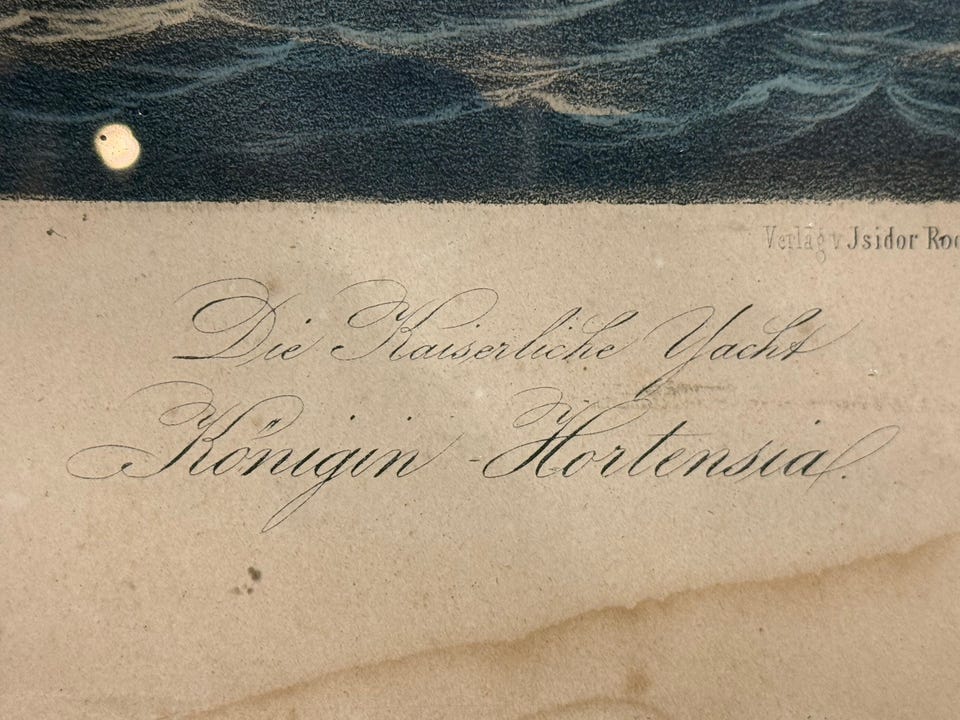 Verlag v Jsidor
Die Kaiserliche Yacht
Königin - Hortensia.